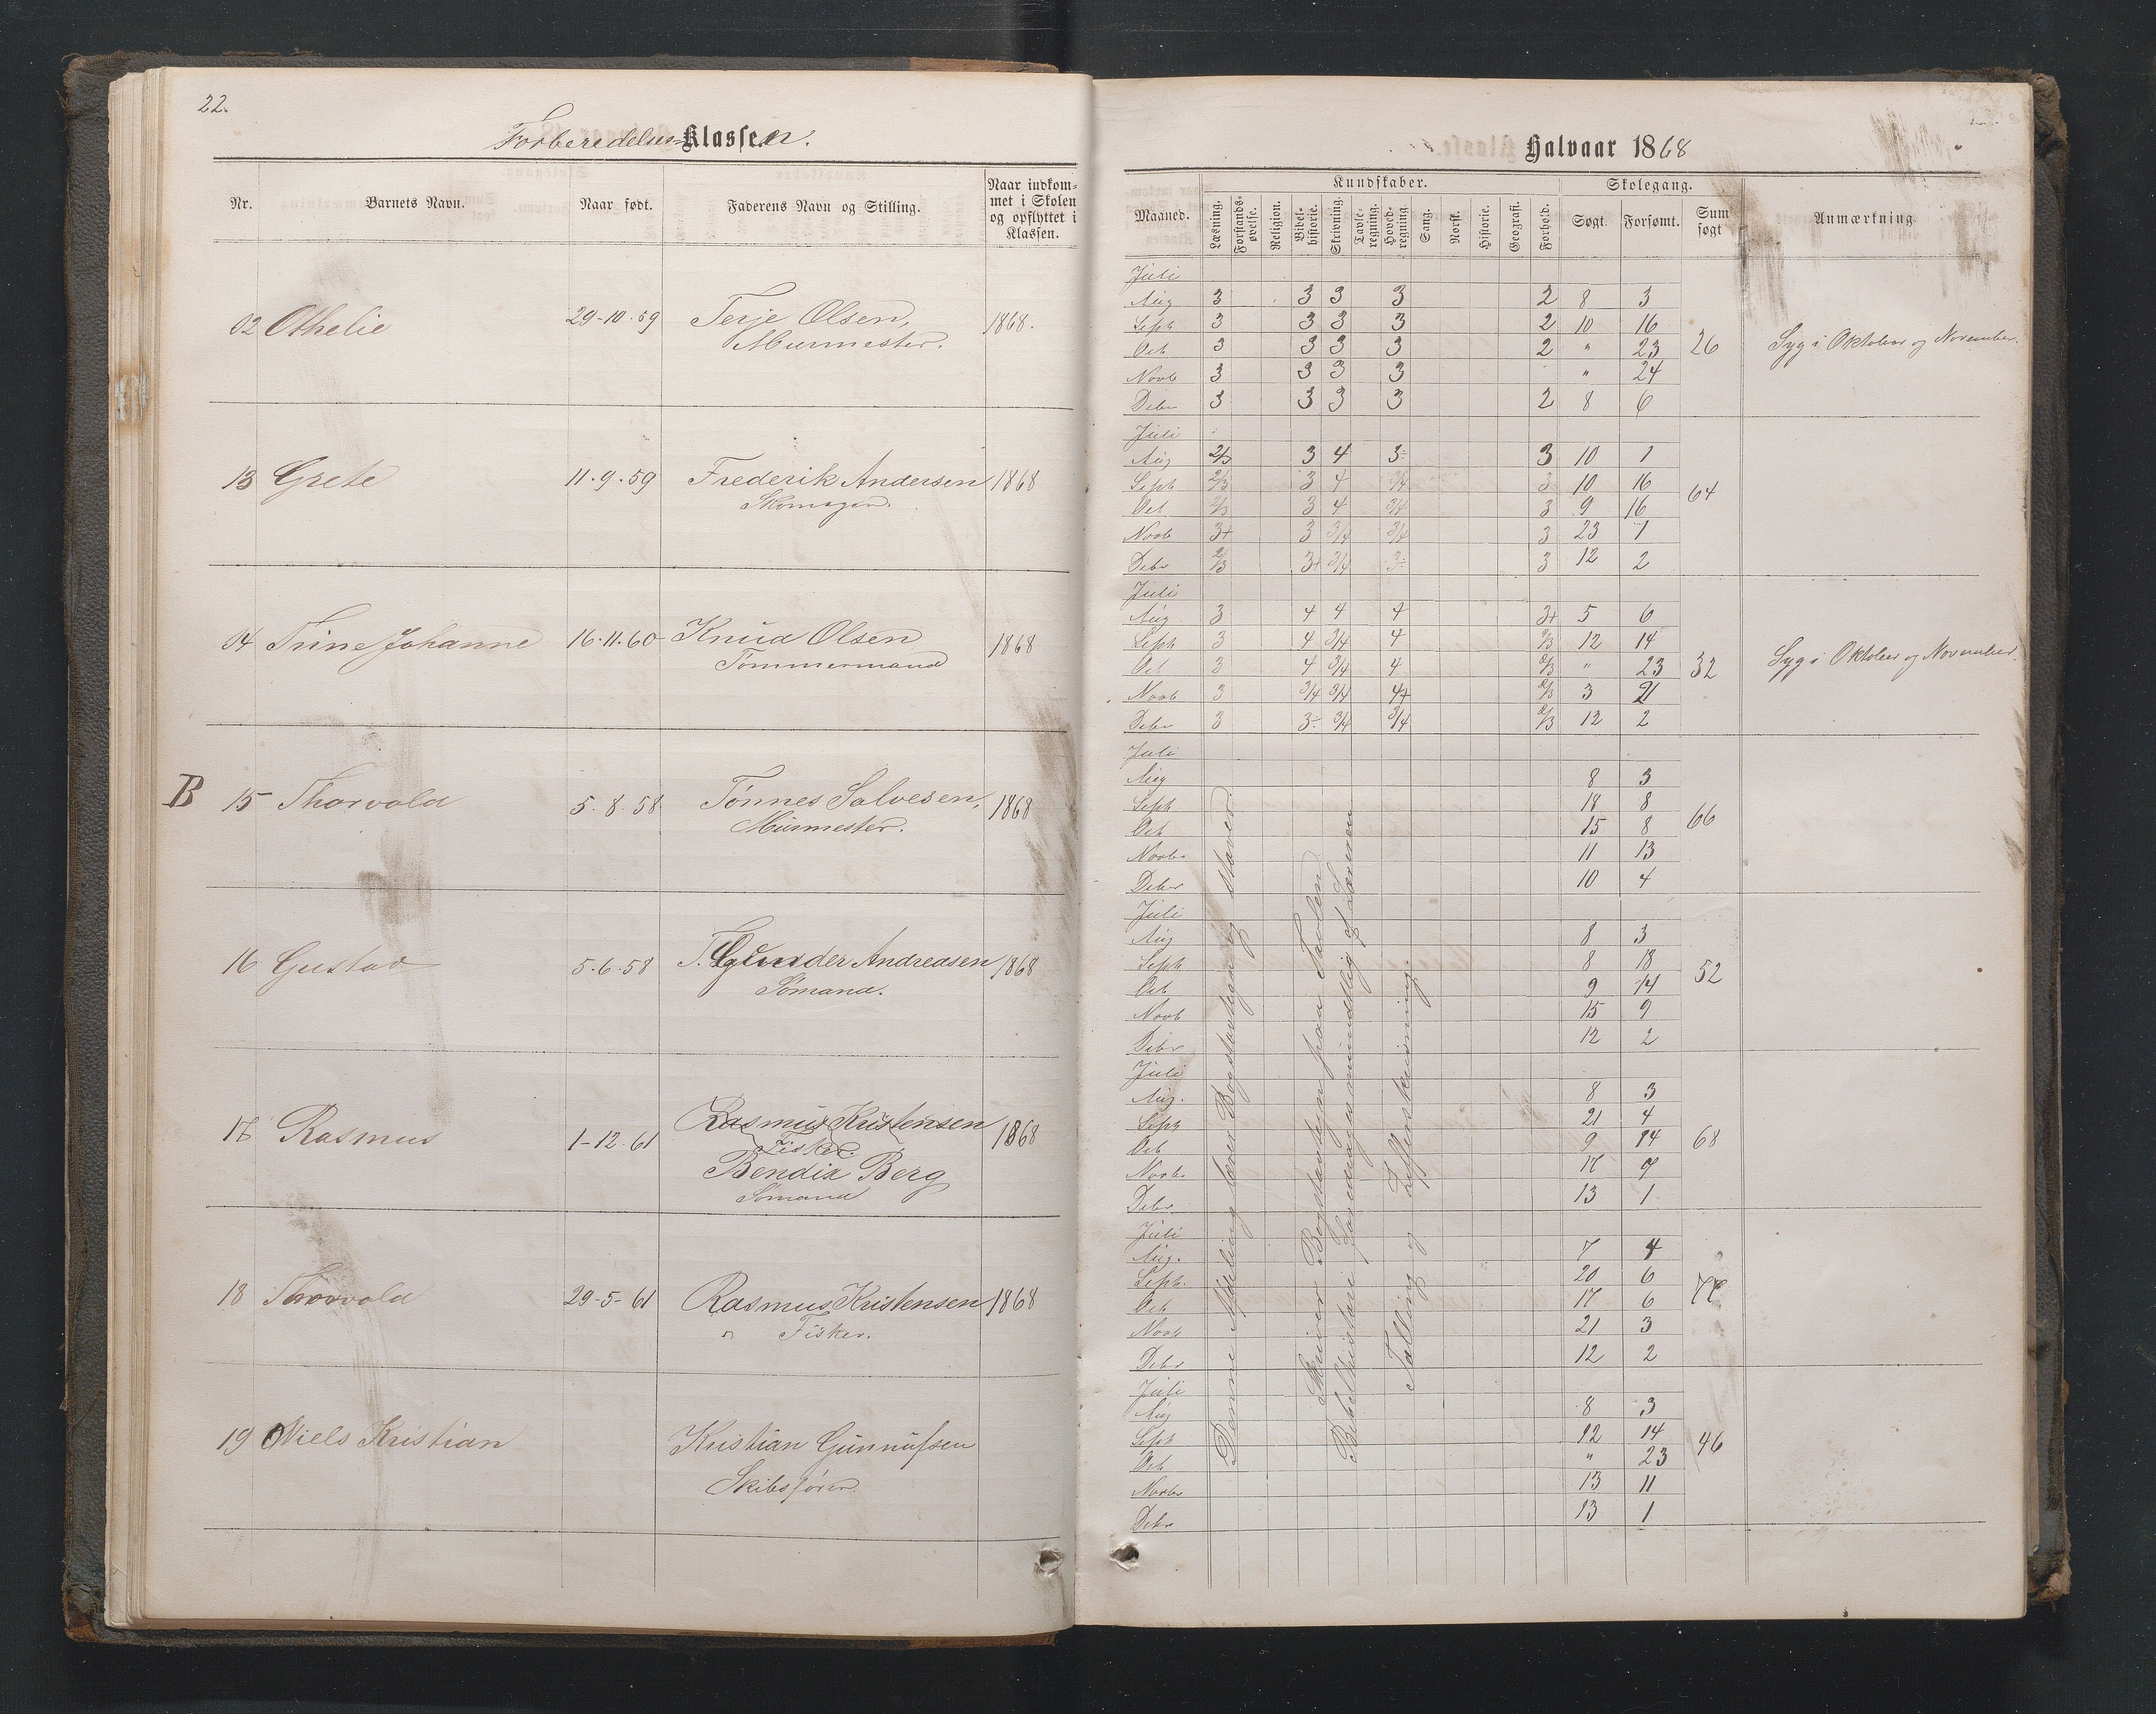 22.
Forberedelses-Klassen.
Nr.
Barnets Navn.
Naar født.
Faderens Navn og Stilling.
Naar indkom-
met i Skolen
og opflyttet i
Klassen.
02 Othelie 29-10-59 Terje Olsen, 1868.
Murmester.
13 Grete 11-9-59 Frederik Andersen 1868
Skomager.
04 Trine Johanne 16-11-60 Knud Olsen 1868
Tømmermand
B 15 Thorvald 5-8-58 Tønnes Salvesen, 1868
Murmester.
16 Gustav 5-6-58 T. Gunder Andreasen 1868
Sømand.
17 Rasmus 1-12-61 Rasmus Kristensen 1868
Fisker.
Bendix Berg
Sømand
18 Thorvald 29-5-61 Rasmus Kristensen 1868
Fisker.
19 Niels Kristian Kristian Gunnufsen
Skibsfører.
Halvaar 1868
Kundskaber.
Skolegang.
Maaned.
Læsning.
Forstands-
øvelse.
Religion.
Bibel-
historie.
Skrivning.
Tavle-
regning.
Hoved-
regning
Sang.
Norsk.
Historie.
Geografi.
Forhold.
Søgt.
Forsømt.
Sum
søgt
Anmærkning
Juli
Aug 3 3 3 3 2 8 3
Septr 3 3 3 3 2 10 16
Oct 3 3 3 3 2 " 23 26 Syg i Oktober og November.
Novb 3 3 3 3 " 24
Debr 3 3 3 3 2 8 6
Juli
Aug 2/3 3 4 3÷ 3 10 1
Septr 2/3 3 4 3/4 3 10 16
Oct 2/3 3 4 3/4 3 9 16 64
Novb 3+ 3 3/4 3/4 3 23 1
Debr 2/3 3+ 3/4 3÷ 3 12 2
Juli
Aug 3 4 4 4 3+ 5 6
Septr 3 4 3/4 4 2/3 12 14
Oct 3 4 3/4 4 2/3 " 23 32 Syg i Oktober og November.
Novb 3 3/4 3/4 4+ 2/3 3 21
Debr 3 3÷ 3/4 3/4 2/3 12 2
Juli
Aug 8 3
Septr 18 8
Oct 15 8 66
Novbr 11 13
Debr 10 4
Juli
Aug 8 3
Septr 8 18
Oct 9 14 52
Novb 15 9
Debr 12 2
Juli
Aug. 8 3
Septr 21 4
Oct 9 14 68
Novbr 17 7
Debr 13 1
Juli
Aug. 7 4
Septr. 20 6
Oct 17 6 77
Novb 21 3
Debr 12 2
Juli
Aug 8 3
Septr 12 14
Oct " 23 46
Novbr 13 11
Debr 13 1
Denne Afdeling lærer Bogstavtegn og staver
Skriver Bogstavtegn paa Tavlen
Bibelhistorie foredrages mundtlig af Læreren
Tælling og Zifferskrivning.